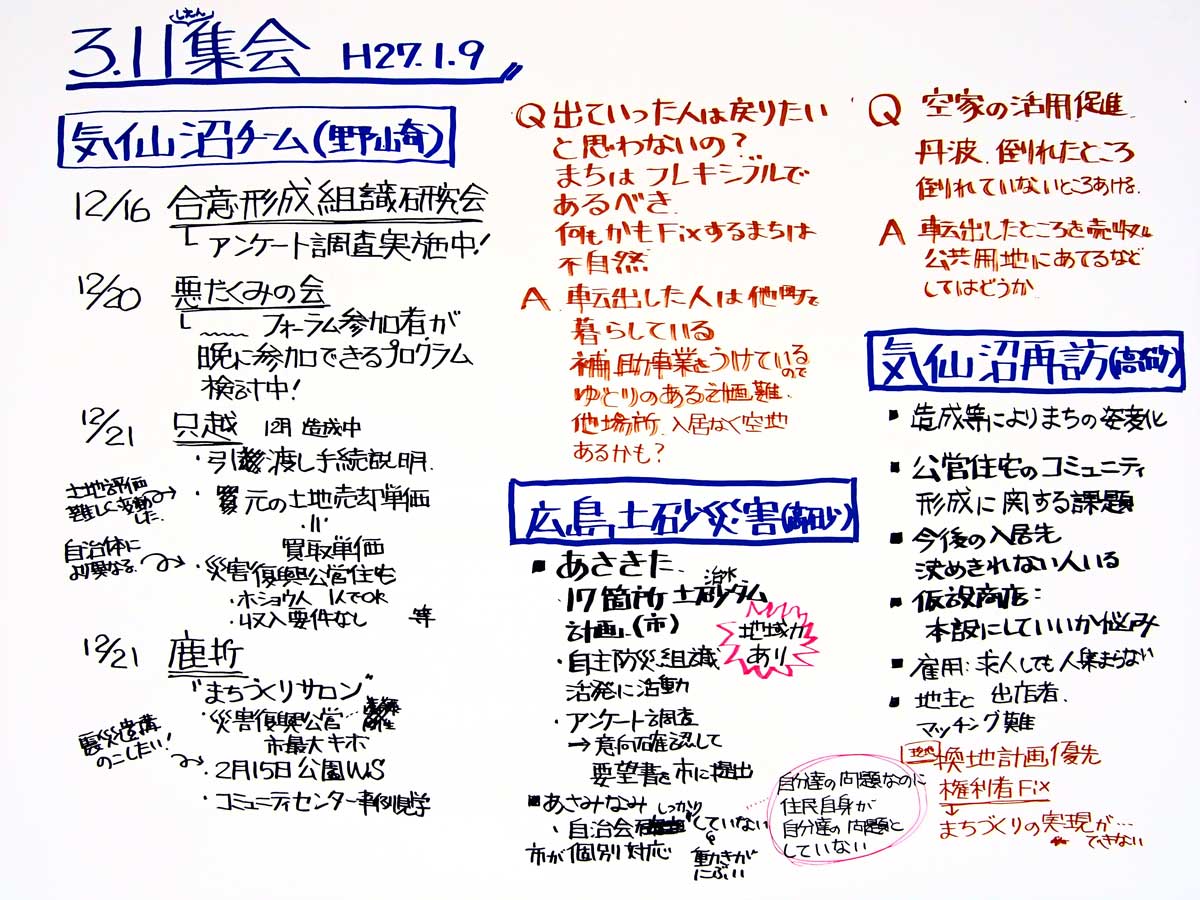 3.11集会 H27.1.9
したん
気仙沼チーム(野崎)
12/16 合意形成組識研究会
アンケート調査実施中!
12/20 悪だくみの会
フォーラム参加者が
晩に参加できるプログラム
検討中!
12/21 只越 12月 造成中
・引き渡し手続説明.
土地評価
難しく変動
した.
・買元の土地売却単価
=
買取単価
自治体に
より異なる.
・災害復興公営住宅
・ホショウ人 1人でOK
・収入要件なし 等
12/21 鹿折
"まちづくりサロン"
・災害復興公営…
市最大キボ
震災遺構
のこしたい!
・2月15日公園WS
・コミュニティセンター事例見学
Q 出ていった人は戻りたい
と思わないの?
まちは フレキシブルで
あるべき.
何もかもFixするまちは
不自然
A. 転出した人は他町で
暮らしている
補助事業をうけているので
ゆとりのある計画難.
他場所.入居なく空地
あるかも?
広島土砂災害(高砂)
■ あさきた.
17箇所 土砂ダム
治水
計画.(市)
地域力
あり
・自主防災組識
活発に活動
・アンケート調査
→意向確認して
要望書を市に提出
■あさみなみ
・自治会 しっかり していない
動きが
にぶい
市が個別対応
自分達の問題なのに
住民自身が
自分達の問題と
していない
Q 空家の活用促進.
丹波.倒れたところ
倒れていないところあける.
A 転出したところを売収し
公共用地にあてるなど
してはどうか.
気仙沼再訪(高砂)
■ 造成等によりまちの姿変化
■ 公営住宅のコミュニティ
形成に関する課題
■ 今後の入居先
決めきれない人いる
■ 仮設商店:
本設にしていいか悩み
■ 雇用:求人しても人集まらない
■ 地主と 出店者.
マッチング難
現地 換地計画優先
権利者Fix
↓
まちづくりの実現が…
できない